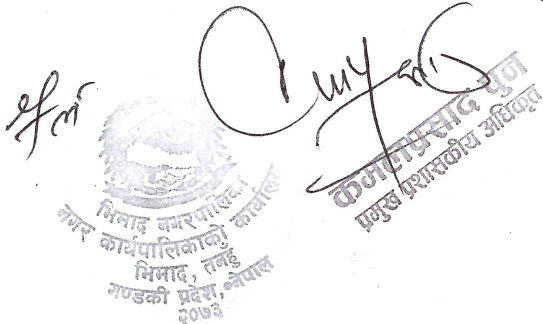 भिमाद नगरपालिका
नगर कार्यपालिकाको कार्यालय
भिमाद, तनहुँ
गण्डकी प्रदेश, नेपाल
२०७३
कमलप्रसाद पुन
प्रमुख प्रशासकीय अधिकृत